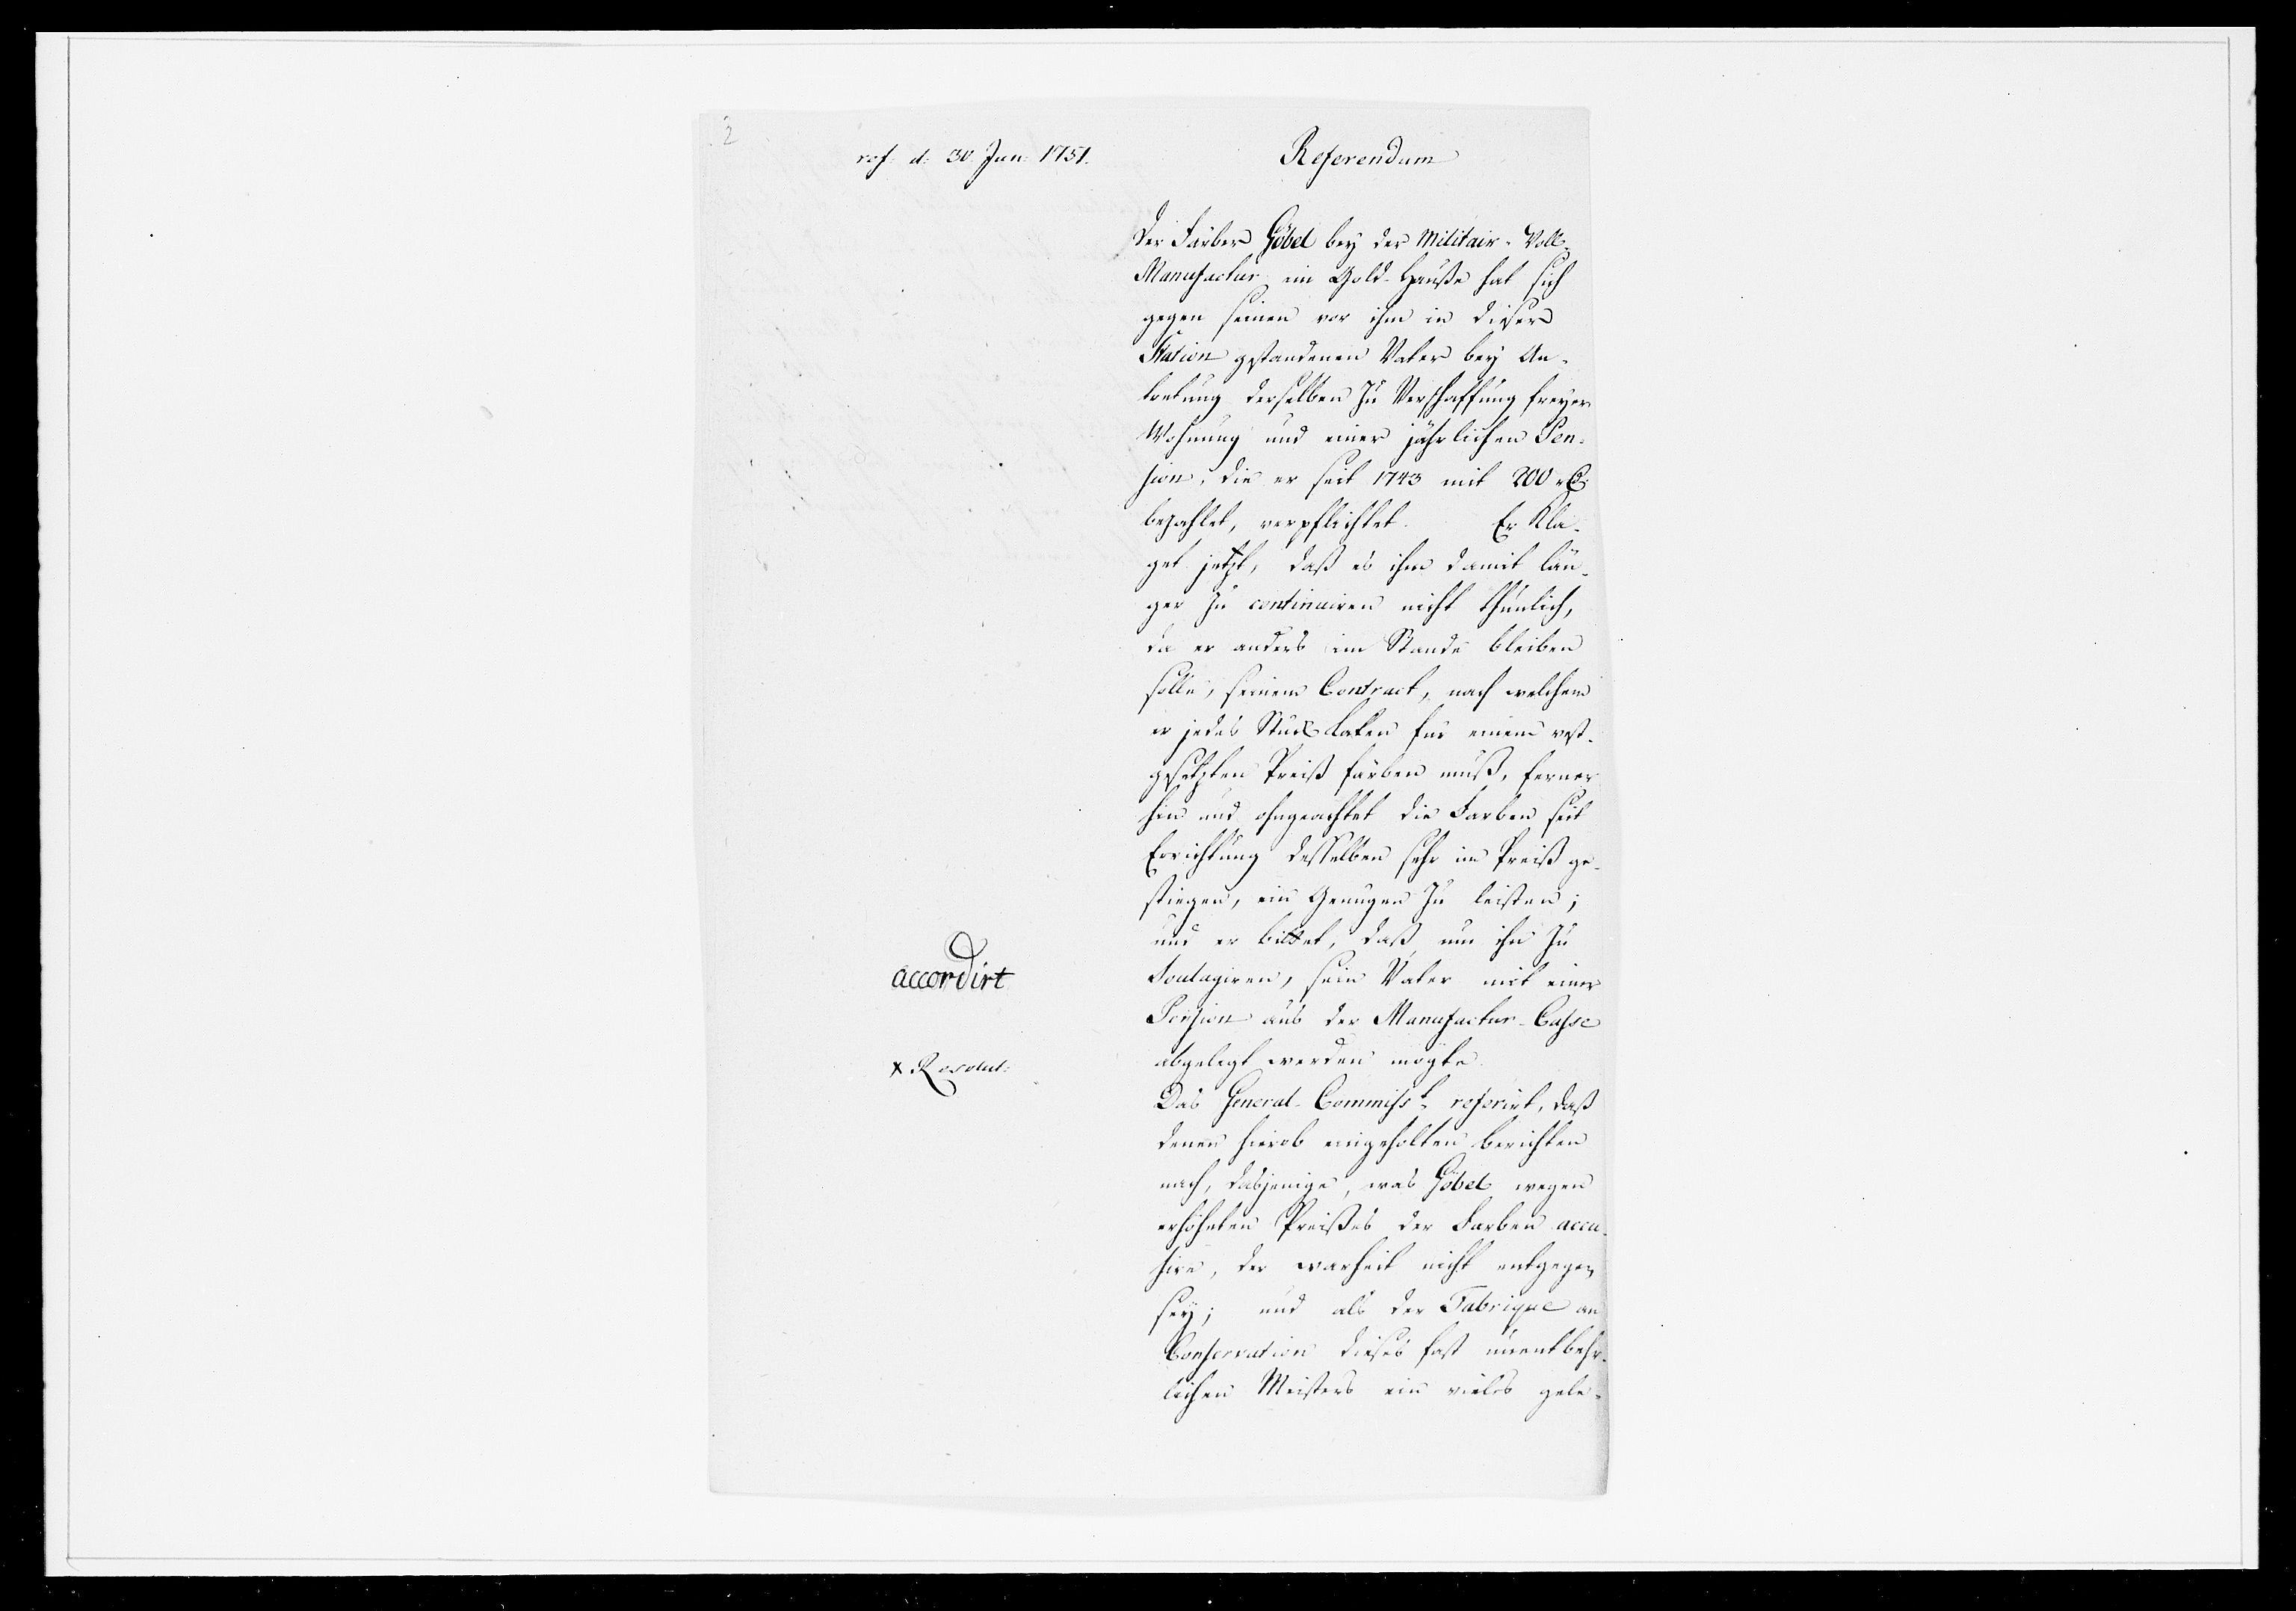 2
ref: d: 30 Jun: 1751.
Referendum
Der Färber Göbel bey der Militair-Woll-
Manufactur im Gold-Hauße hat sich
gegen seinen vor ihm in dieser
Station gestandenen Vater bey An-
tretung derselben zu Verschaffung freyer
Wohnung und einer jährlichen Pen-
sion, die er seit 1743 mit 200 rC
bezahlet, verpflichtet. Er kla-
get jetzt, daß es ihm damit län-
ger zu continuiren nicht thunlich,
da er anders im Stande bleiben
solle, seinem Contract, nach welchem
er jedes Stück Laken für einem vest-
gesetzten Preiß färben muß, ferner
hin und ohngeachtet die Farben seit
Errichtung desselben sehr im Preiß ge-
stiegen, ein Genügen zu leisten;
und er bittet, daß, um ihn zu
soulagiren, sein Vater mit einer
Pension aus der Manufactur-Casse
abgelegt werden mögte.
accordirt
x Resolut:
Das General-Commiss.t referirt, daß
denen hierob eingeholten Berichten
nach, dasjenige, was Göbel wegen
erhöheten Preißes der Farben accu-
sire, der warheit nicht entgegen
sey; und als der Fabrique an
Conservation dieses fast unentbehr-
lichen Meisters ein vieles gele-